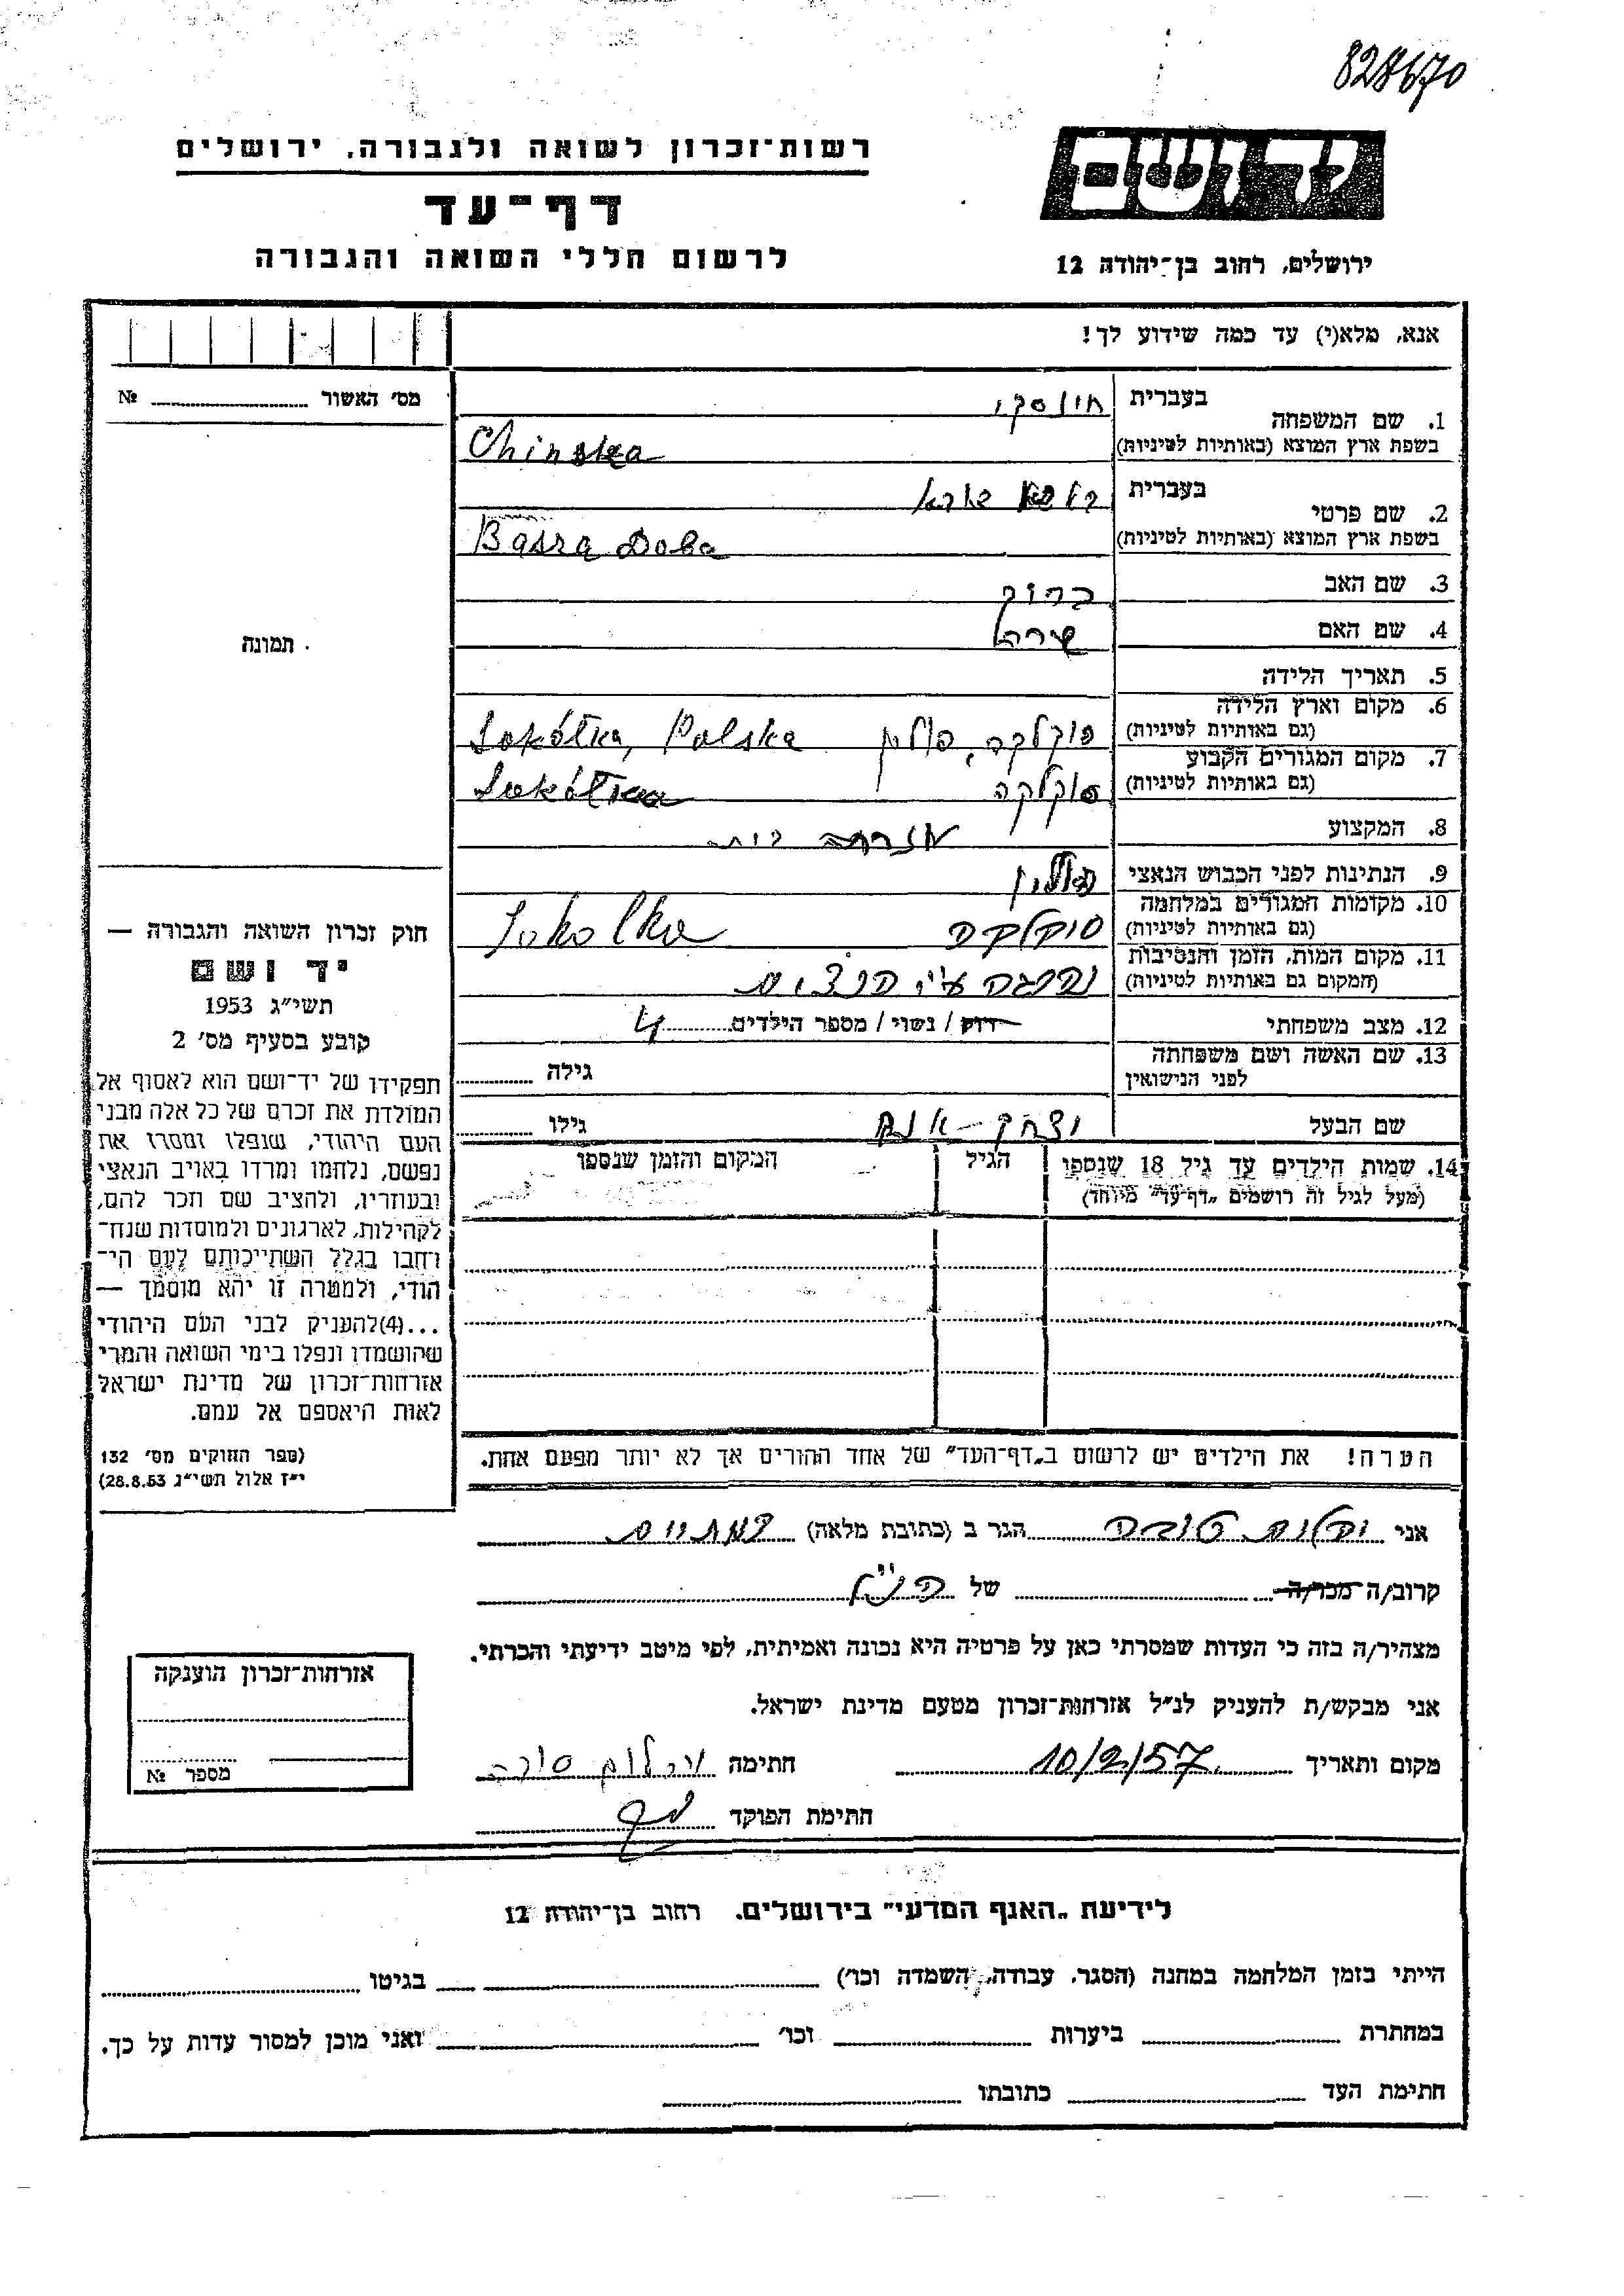 828670
רשות־זכרון לשואה ולגבורה, ירושלים
יד ושם
דף־עד
לרשום חללי השואה והגבורה
ירושלים, רחוב בן־יהודה 12
אנא, מלא(י) עד כמה שידוע לך!
מס׳ האשור № 
1. שם המשפחה
בעברית
בשפת ארץ המוצא (באותיות לטיניות) Chinska
2. שם פרטי
בעברית
בשפת ארץ המוצא (באותיות לטיניות) Basra Doba
3. שם האב ברוך
4. שם האם
תמונה
5. תאריך הלידה
6. מקום וארץ הלידה
(גם באותיות לטיניות) סוקלקה, פולין Sokółka, Polska
7. מקום המגורים הקבוע
(גם באותיות לטיניות) סוקלקה Sokółka
8. המקצוע עזרת בית
9. הנתינות לפני הכבוש הנאצי פולין
10. מקומות המגורים במלחמה
(גם באותיות לטיניות) סוקלקה Sokolka
11. מקום המות, הזמן והנסיבות
(המקום גם באותיות לטיניות) נהרגה ע״י הנצים
12. מצב משפחתי רווק / נשוי / מספר הילדים 4
13. שם האשה ושם משפחתה
לפני הנישואין גילה
שם הבעל יצחק גילו
14. שמות הילדים עד גיל 18 שנספו הגיל המקום והזמן שנספו
(מעל לגיל זה רושמים „דף־עד״ מיוחד)
הערה! את הילדים יש לרשום ב„דף־העד״ של אחד ההורים אך לא יותר מפעם אחת.
חוק זכרון השואה והגבורה —
יד ושם
תשי״ג 1953
קובע בסעיף מס׳ 2
תפקידו של יד־ושם הוא לאסוף אל
המולדת את זכרם של כל אלה מבני
העם היהודי, שנפלו ומסרו את
נפשם, נלחמו ומרדו באויב הנאצי
ובעוזריו, ולהציב שם וזכר להם,
לקהילות, לארגונים ולמוסדות שנח־
רבו בגלל השתייכותם לעם הי־
הודי, ולמטרה זו יהא מוסמך —
...(4)להעניק לבני העם היהודי
שהושמדו ונפלו בימי השואה והמרי
אזרחות־זכרון של מדינת ישראל
לאות היאספם אל עמם.
(ספר החוקים מס׳ 132
י״ז אלול תשי״ג 28.8.53)
אני טובה הגר ב (כתובת מלאה)
קרוב/ה מכר/ה של הנ״ל
מצהיר/ה בזה כי העדות שמסרתי כאן על פרטיה היא נכונה ואמיתית, לפי מיטב ידיעתי והכרתי.
אני מבקש/ת להעניק לנ״ל אזרחות־זכרון מטעם מדינת ישראל.
מקום ותאריך 10/2/57 חתימה
חתימת הפוקד
אזרחות־זכרון הוענקה
מספר №
לידיעת „האגף המדעי״ בירושלים. רחוב בן־יהודה 12
הייתי בזמן המלחמה במחנה (הסגר, עבודה, השמדה וכו׳) בגיטו
במחתרת ביערות וכו׳ ואני מוכן למסור עדות על כך.
חתימת העד כתובתו